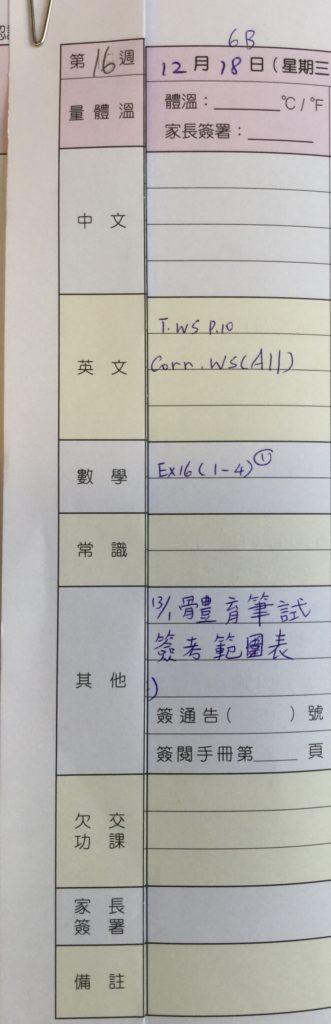 6B
第16週 12月18日(星期三
量體溫 體溫：______℃/℉
家長簽署：______
中文
T.WS P.10
英文 Corr. WS(All)
數學 EX16(1-4)①
常識
13/1 體育筆試
簽考範圍表
其他 )
簽通告( )號
簽閱手冊第____頁
欠交
功課
家長
簽署
備註